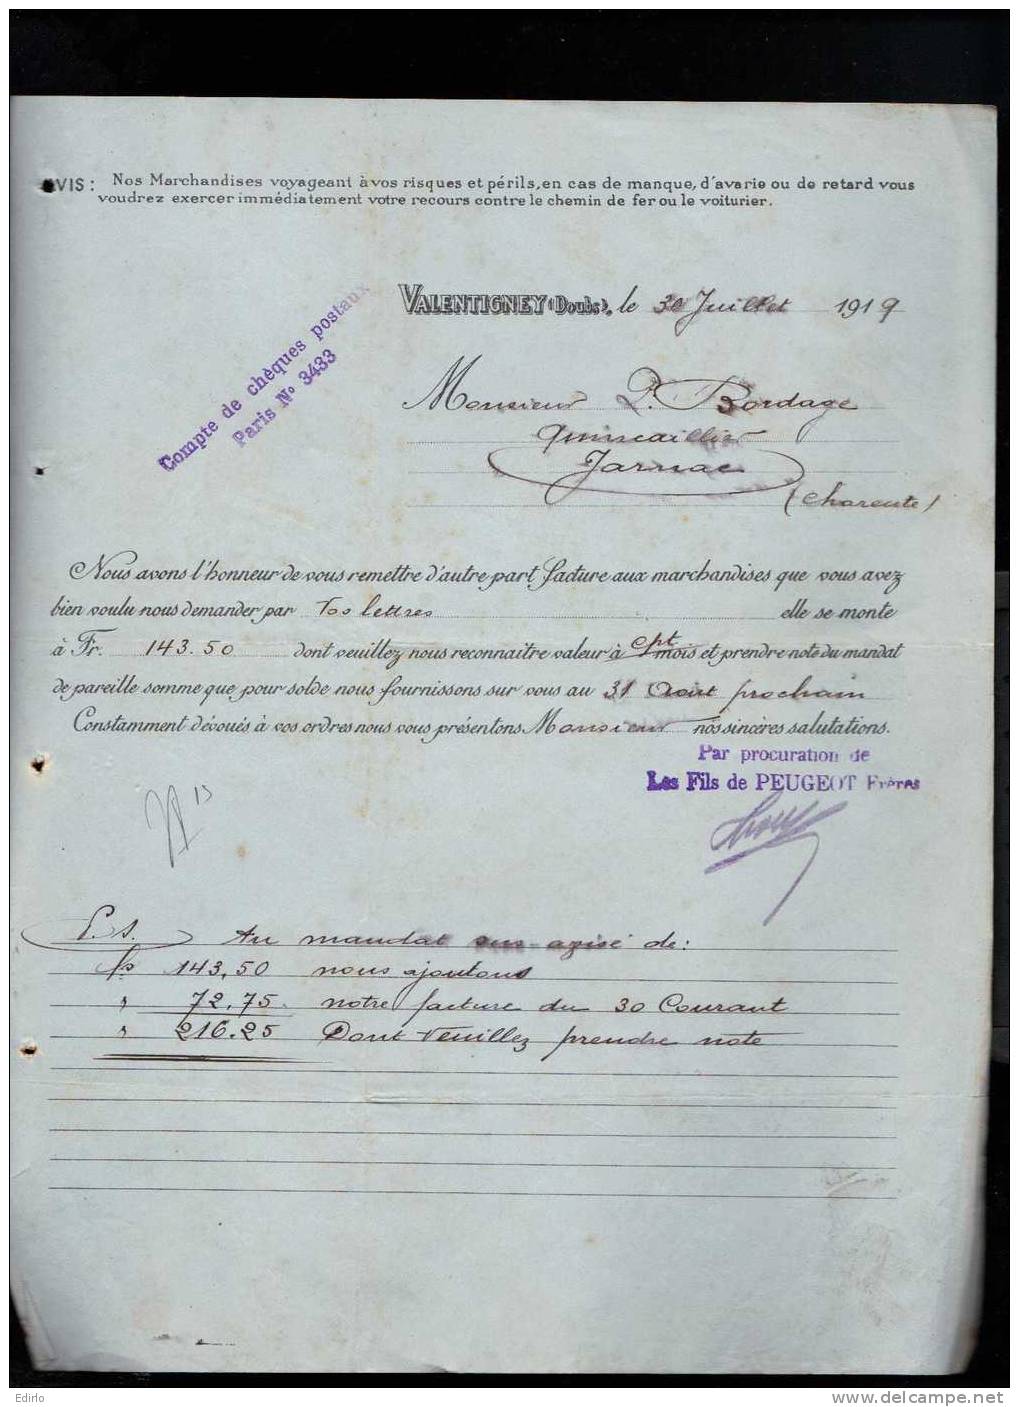 AVIS: Nos Marchandises voyageant à vos risques et périls, en cas de manque, d'avarie ou de retard vous
voudrez exercer immédiatement votre recours contre le chemin de fer ou le voiturier.
VALENTIGNEY (Doubs), le 30 Juillet 1919
Compte de chèques postaux
Paris No 3433
Monsieur P. Bordage
quincaillier
Jarnac
(Charente)
Nous avons l'honneur de vous remettre d'autre part facture aux marchandises que vous avez
bien voulu nous demander par Vos lettres elle se monte
à Fr. 143.50 dont veuillez nous reconnaitre valeur à cpt mois et prendre note du mandat
de pareille somme que pour solde nous fournissons sur vous au 31 Aout prochain
Constamment dévoués à vos ordres nous vous présentons Monsieur nos sincères salutations.
Par procuration de
Les Fils de PEUGEOT Frères
P.S. Au mandat sus avisé de:
fs 143,50 nous ajoutons
" 72,75 notre facture du 30 Courant
" 216.25 Dont veuillez prendre note
Edirlo
delcampe.net